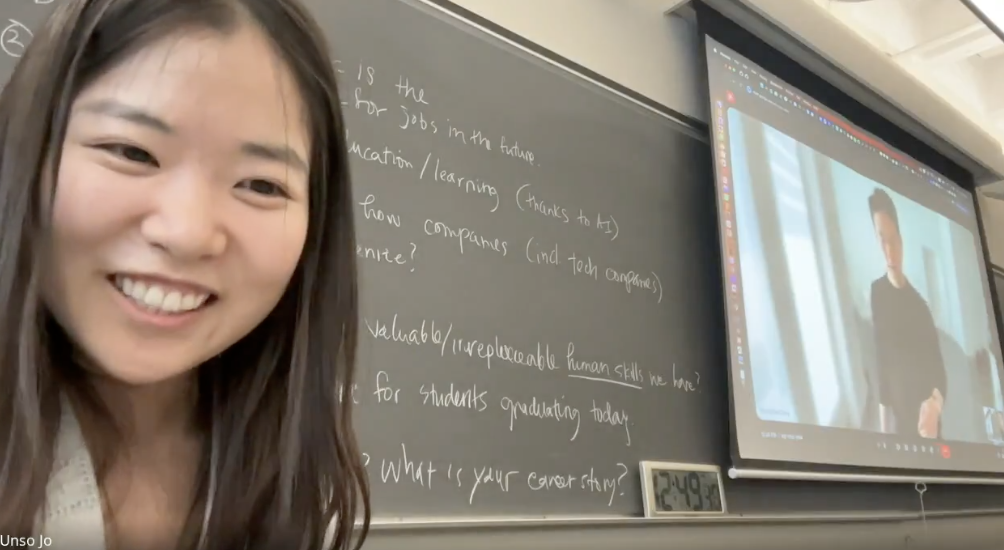 ②
is the
for jobs in the future.
ucation/learning (thanks to AI)
how companies (incl tech companies)
valuable/irreplaceable human skills we have?
for students graduating today.
? What is your career story?
12:49
Unso Jo